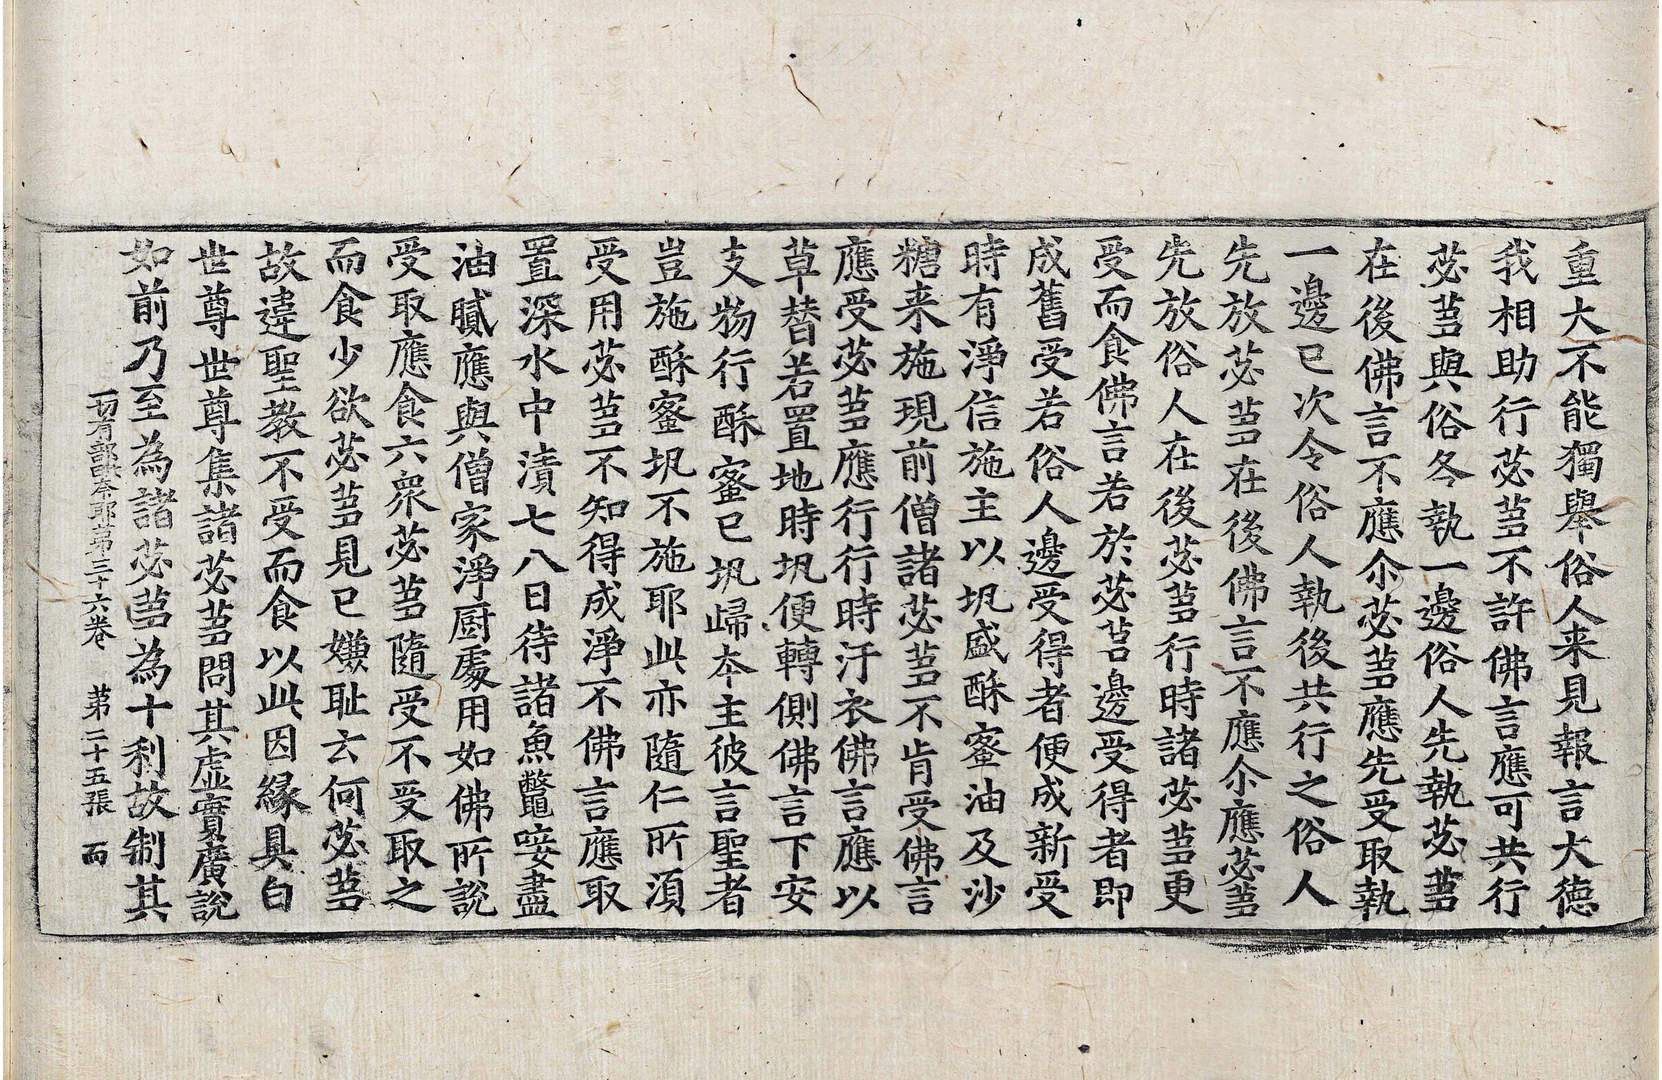 重大不能獨舉俗人来見報言大德
我相助行苾芻不許佛言應可共行
苾芻與俗各執一邊俗人先執苾芻
在後佛言不應尒苾芻應先受取執
一邊已次令俗人執後共行之俗人
先放苾芻在後佛言不應尒應苾芻
先放俗人在後苾芻行時諸苾芻更
受而食佛言若於苾芻邊受得者即
成舊受若俗人邊受得者便成新受
時有淨信施主以㼜盛酥蜜油及沙
糖来施現前僧諸苾芻不肯受佛言
應受苾芻應行行時汙衣佛言應以
草替若置地時㼜便轉側佛言下安
支物行酥蜜已㼜歸夲主彼言聖者
豈施酥蜜㼜不施耶此亦隨仁所湏
受用苾芻不知得成淨不佛言應取
置深水中漬七八日待諸魚鼈唼盡
油膩應與僧家淨厨處用如佛所說
受取應食六衆苾芻隨受不受取之
而食少欲苾芻見已嫌耻云何苾芻
故違聖教不受而食以此因緣具白
世尊世尊集諸苾芻問其虛實廣說
如前乃至為諸苾芻為十利故制其
一切有部毗奈耶第三十六卷　第二十五張　而